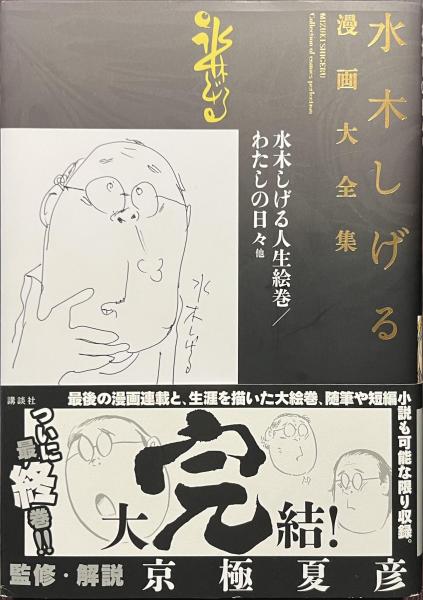 水木しげる
漫画大全集
MIZUKI SHIGERU
Collection of comics perfection
水木しげる
水木しげる人生絵巻／
わたしの日々 他
水木しげる
講談社
最後の漫画連載と、生涯を描いた大絵巻、随筆や短編
小説も可能な限り収録。
ついに
最終巻!!
大完結!
監修・解説 京極夏彦